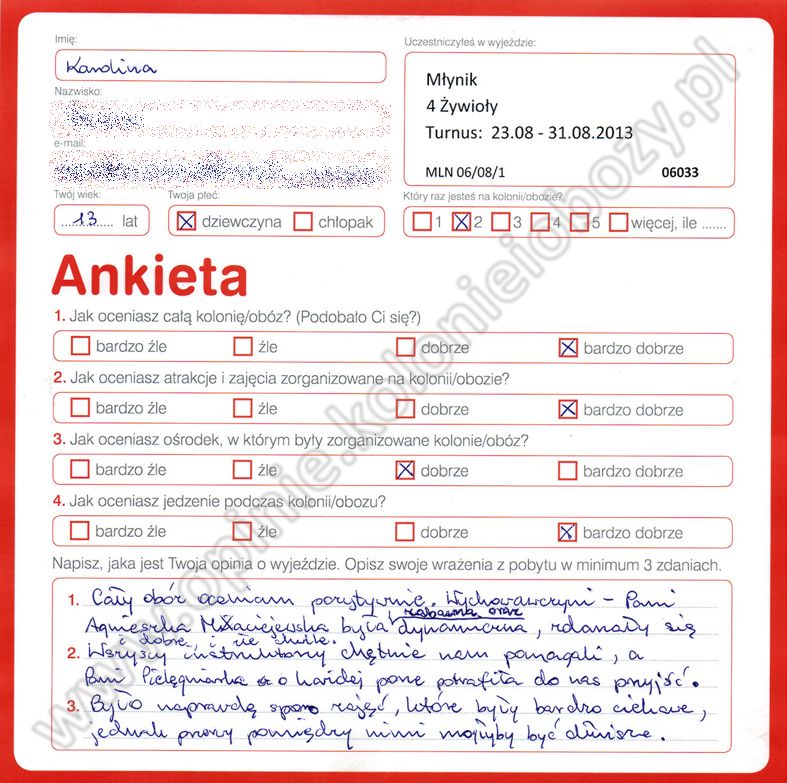 Imię:
Karolina
Uczestniczyłeś w wyjeździe:
Młynik
4 Żywioły
Turnus: 23.08 - 31.08.2013
MLN 06/08/1 06033
Nazwisko:
e-mail:
Twój wiek:
13 lat
Twoja płeć:
dziewczyna chłopak
Który raz jesteś na kolonii/obozie?
1 2 3 4 5 więcej, ile .......
Ankieta
1. Jak oceniasz całą kolonię/obóz? (Podobało Ci się?)
bardzo źle źle dobrze bardzo dobrze
2. Jak oceniasz atrakcje i zajęcia zorganizowane na kolonii/obozie?
bardzo źle źle dobrze bardzo dobrze
3. Jak oceniasz ośrodek, w którym były zorganizowane kolonie/obóz?
bardzo źle źle dobrze bardzo dobrze
4. Jak oceniasz jedzenie podczas kolonii/obozu?
bardzo źle źle dobrze bardzo dobrze
Napisz, jaka jest Twoja opinia o wyjeździe. Opisz swoje wrażenia z pobytu w minimum 3 zdaniach.
1. Cały obóz oceniam pozytywnie. Wychowawczyni - Pani
zabawna oraz
Agnieszka Maciejewska była dynamiczna, zdarzały się
i dobre i złe chwile.
2. Wszyscy instruktorzy chętnie nam pomagali, a
Pani Pielęgniarka o każdej porze potrafiła do nas przyjść.
3. Było naprawdę sporo zajęć, które były bardzo ciekawe,
jednak przerwy pomiędzy nimi mogłyby być dłuższe.
www.opinie.kolonieiobozy.pl